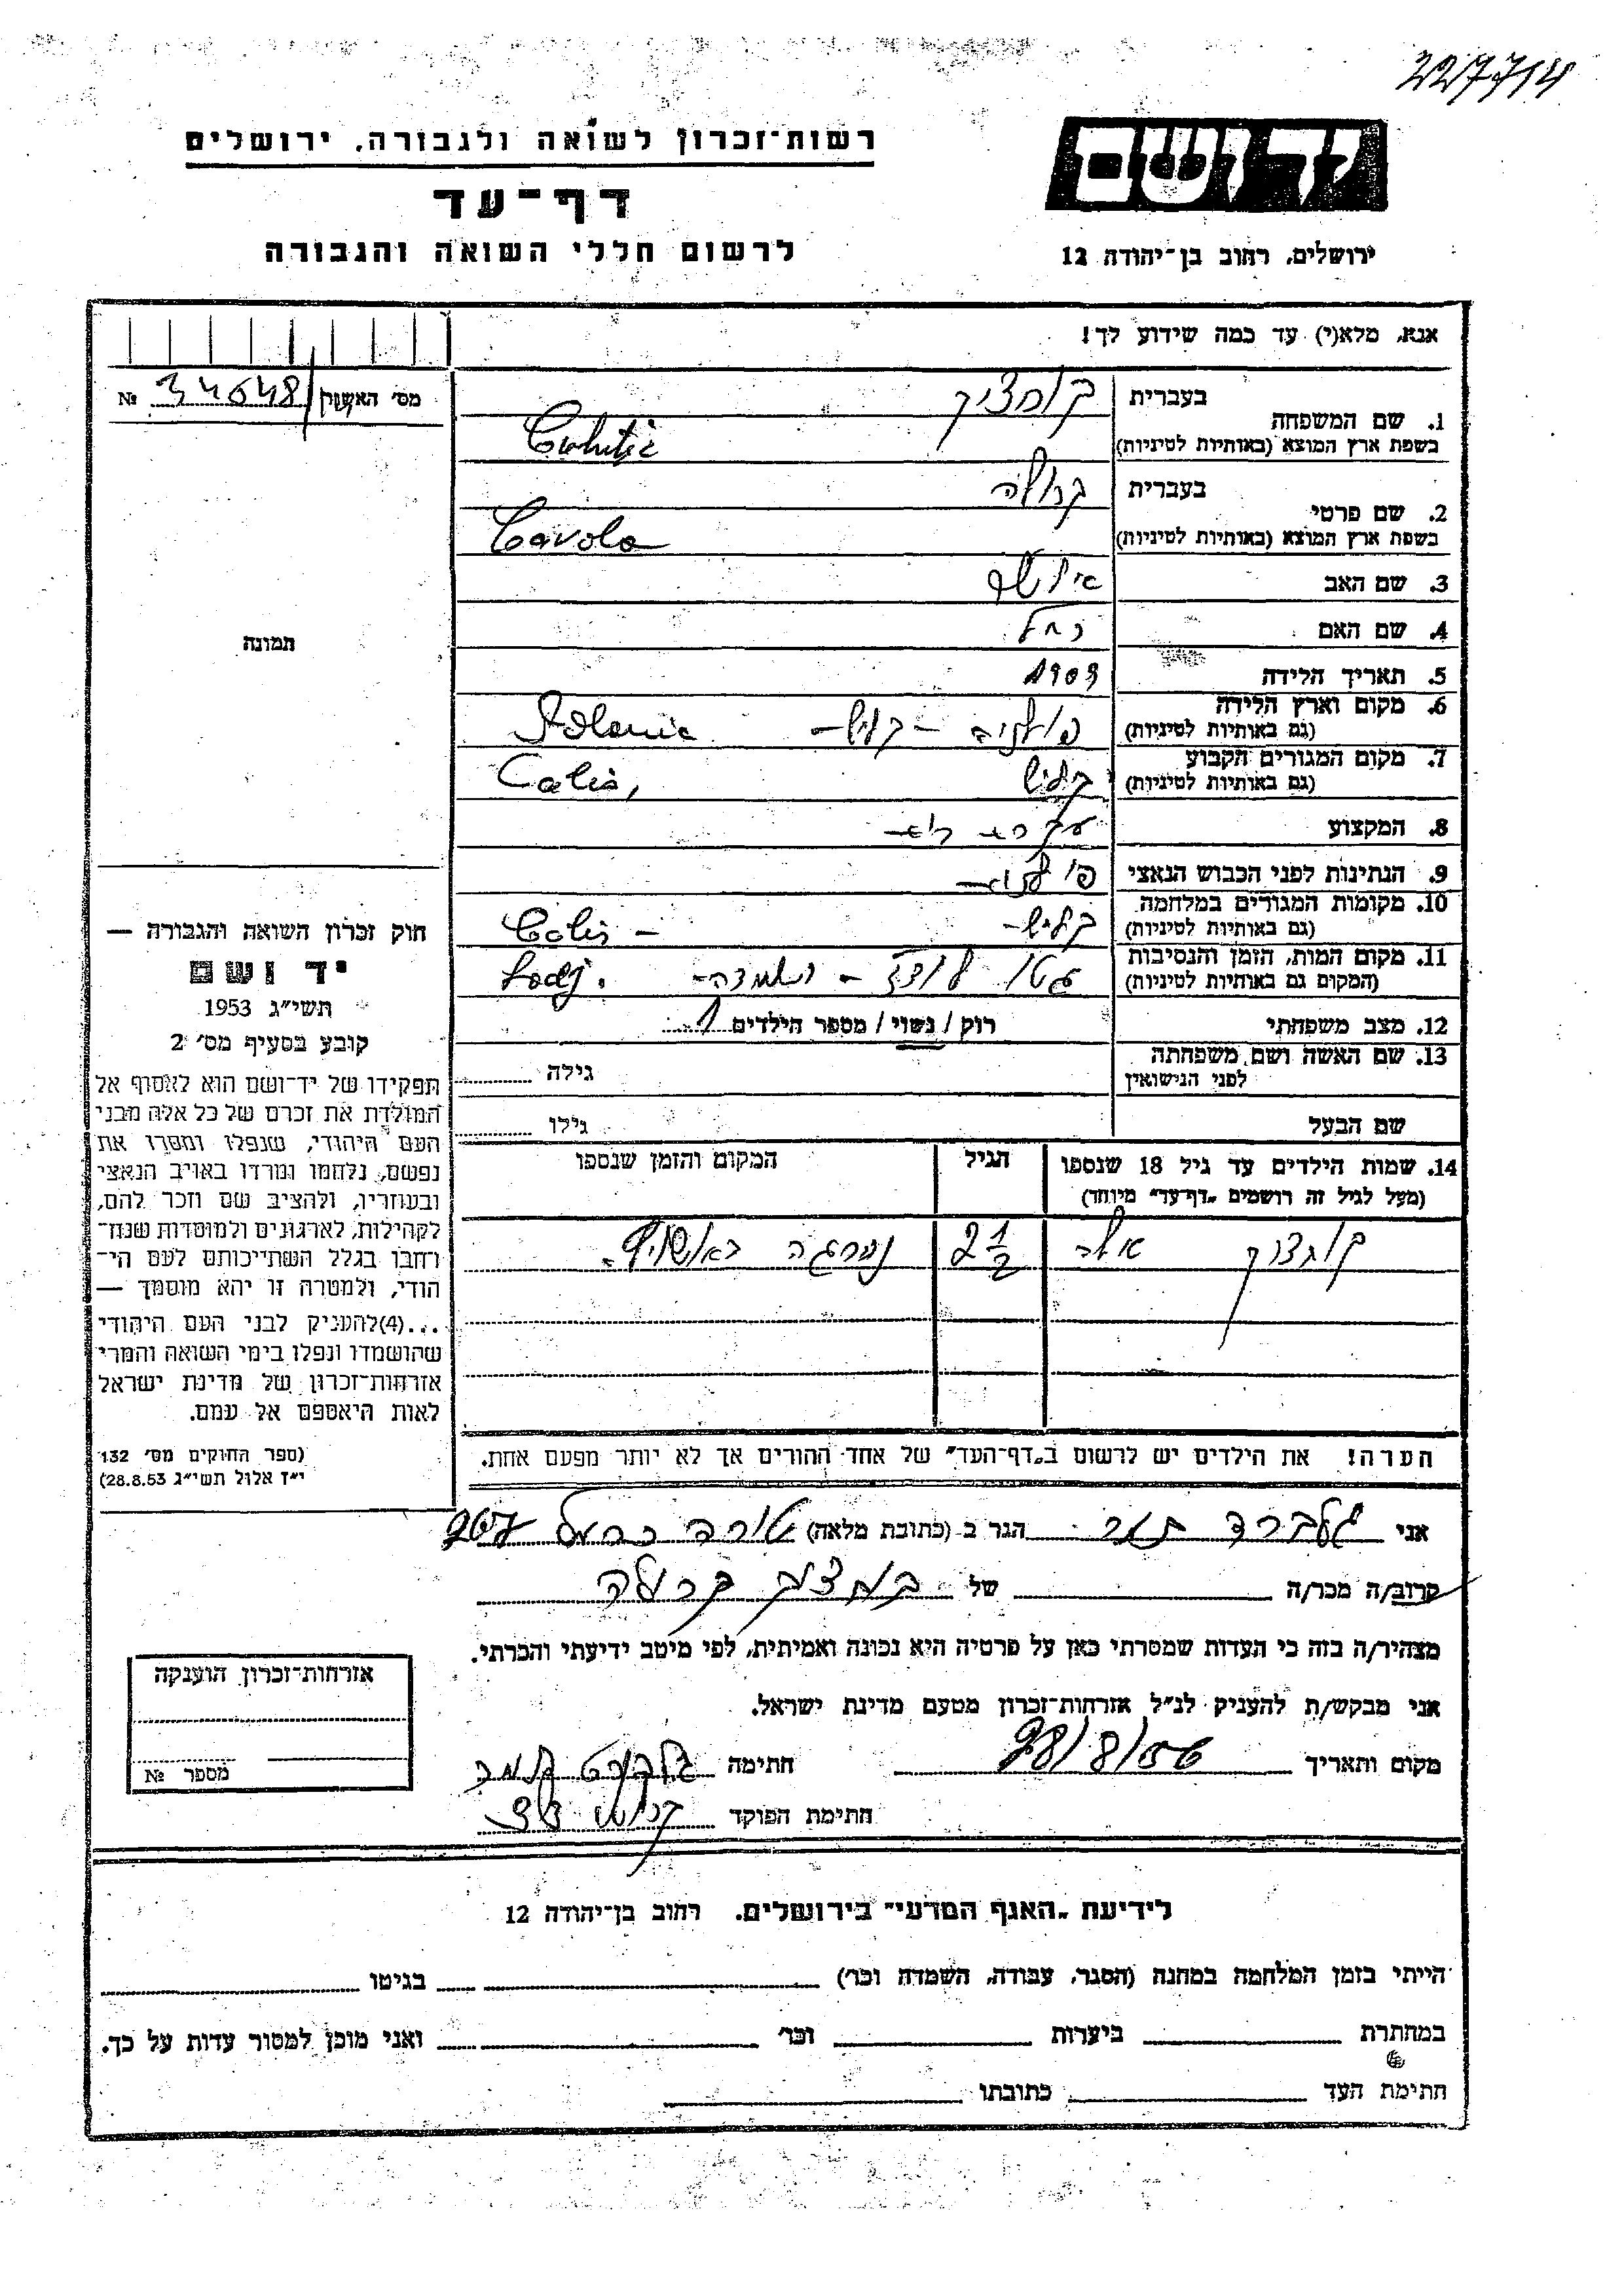 227714
רשות־זכרון לשואה ולגבורה, ירושלים
דף־עד
לרשום חללי השואה והגבורה
יד ושם
ירושלים, רחוב בן־יהודה 12
אנא, מלא(י) עד כמה שידוע לך!
מס׳ האשה № 34648
1. שם המשפחה בעברית
בשפת ארץ המוצא (באותיות לטיניות)
2. שם פרטי בעברית קרולה
בשפת ארץ המוצא (באותיות לטיניות) Carola
3. שם האב
4. שם האם רחל
5. תאריך הלידה 1909
6. מקום וארץ הלידה
(גם באותיות לטיניות) פולניה - קליש - Polania
7. מקום המגורים הקבוע
(גם באותיות לטיניות) קליש Calis,
8. המקצוע
9. הנתינות לפני הכבוש הנאצי
10. מקומות המגורים במלחמה
(גם באותיות לטיניות) קליש - Calis -
11. מקום המות, הזמן והנסיבות
(המקום גם באותיות לטיניות) גטו לודז - Lodj.
12. מצב משפחתי רוק / נשוי / מספר הילדים 1
13. שם האשה ושם משפחתה
לפני הנישואין גילה
שם הבעל גילו
14. שמות הילדים עד גיל 18 שנספו
(מעל לגיל זה רושמים „דף־עד״ מיוחד)
הגיל
המקום והזמן שנספו
2 1/2
הערה! את הילדים יש לרשום ב„דף־העד״ של אחד ההורים אך לא יותר מפעם אחת.
תמונה
חוק זכרון השואה והגבורה —
יד ושם
תשי״ג 1953
קובע בסעיף מס׳ 2
תפקידו של יד־ושם הוא לאסוף אל
המולדת את זכרם של כל אלה מבני
העם היהודי, שנפלו ומסרו את
נפשם, נלחמו ומרדו באויב הנאצי
ובעוזריו, ולהציב שם וזכר להם,
לקהילות, לארגונים ולמוסדות שנח־
רבו בגלל השתייכותם לעם הי־
הודי, ולמטרה זו יהא מוסמך —
...(4)להעניק לבני העם היהודי
שהושמדו ונפלו בימי השואה והמרי
אזרחות־זכרון של מדינת ישראל
לאות היאספם אל עמם.
(ספר החוקים מס׳ 132
י״ז אלול תשי״ג 28.8.53)
אני הגר ב (כתובת מלאה) טירה כרמל
קרוב/ה מכר/ה של קרולה
מצהיר/ה בזה כי העדות שמסרתי כאן על פרטיה היא נכונה ואמיתית, לפי מיטב ידיעתי והכרתי.
אני מבקש/ת להעניק לנ״ל אזרחות־זכרון מטעם מדינת ישראל.
מקום ותאריך 28/8/56 חתימה
חתימת הפוקד
אזרחות־זכרון הוענקה
מספר №
לידיעת „האגף המדעי״ בירושלים, רחוב בן־יהודה 12
הייתי בזמן המלחמה במחנה (הסגר, עבודה, השמדה וכר׳) בגיטו
במחתרת ביערות וכר׳ ואני מוכן למסור עדות על כך.
חתימת העד כתובתו